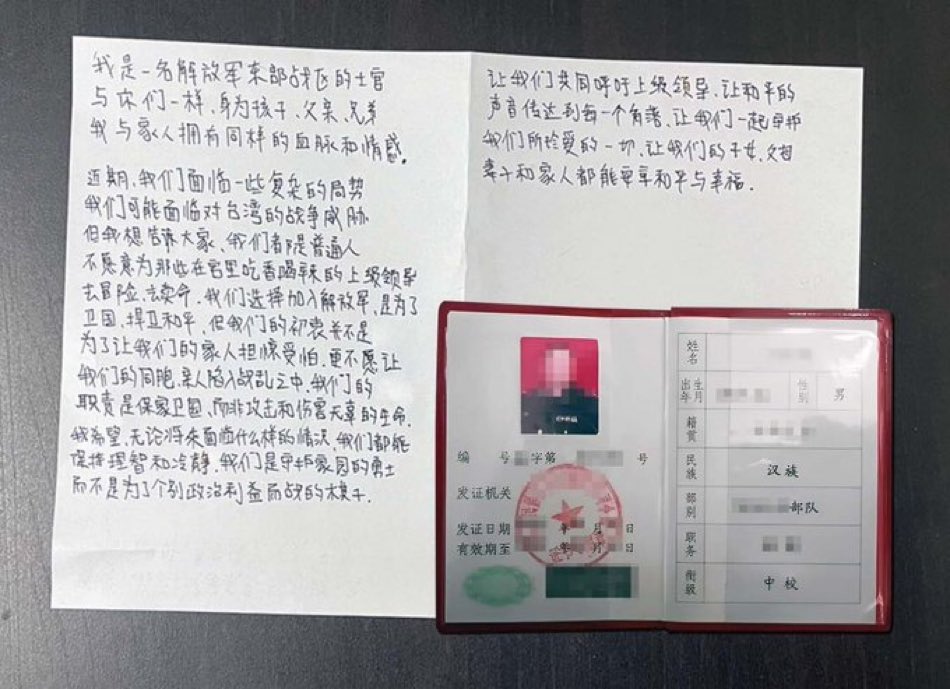 我是一名解放军东部战区的士官
与你们一样、身为孩子、父亲、兄弟
我与家人拥有同样的血脉和情感。
近期、我们面临一些复杂的局势
我们可能面临对台湾的战争威胁
但我想告诉大家、我们都是普通人
不愿意为那些在宫里吃香喝辣的上级领导
去冒险、去卖命。我们选择加入解放军、是为了
卫国、捍卫和平、但我们的初衷并不是
为了让我们的家人担惊受怕、更不愿让
我们的同胞、亲人陷入战乱之中、我们的
职责是保家卫国、而非攻击和伤害无辜的生命。
我希望、无论将来面临什么样的情况、我们都能
保持理智和冷静、我们是守护家园的勇士
而不是为了个别政治利益而战的棋子.
让我们共同呼吁上级领导、让和平的
声音传达到每一个角落、让我们一起守护
我们所珍爱的一切、让我们的子女、父母
妻子和家人都能享享和平与幸福.
编 号 字第 号
发证机关
发证日期 年 月 日
有效期至 年 月 日
姓名
出生年月 性别 男
籍贯
民族 汉族
部别 部队
职务
衔级 中校